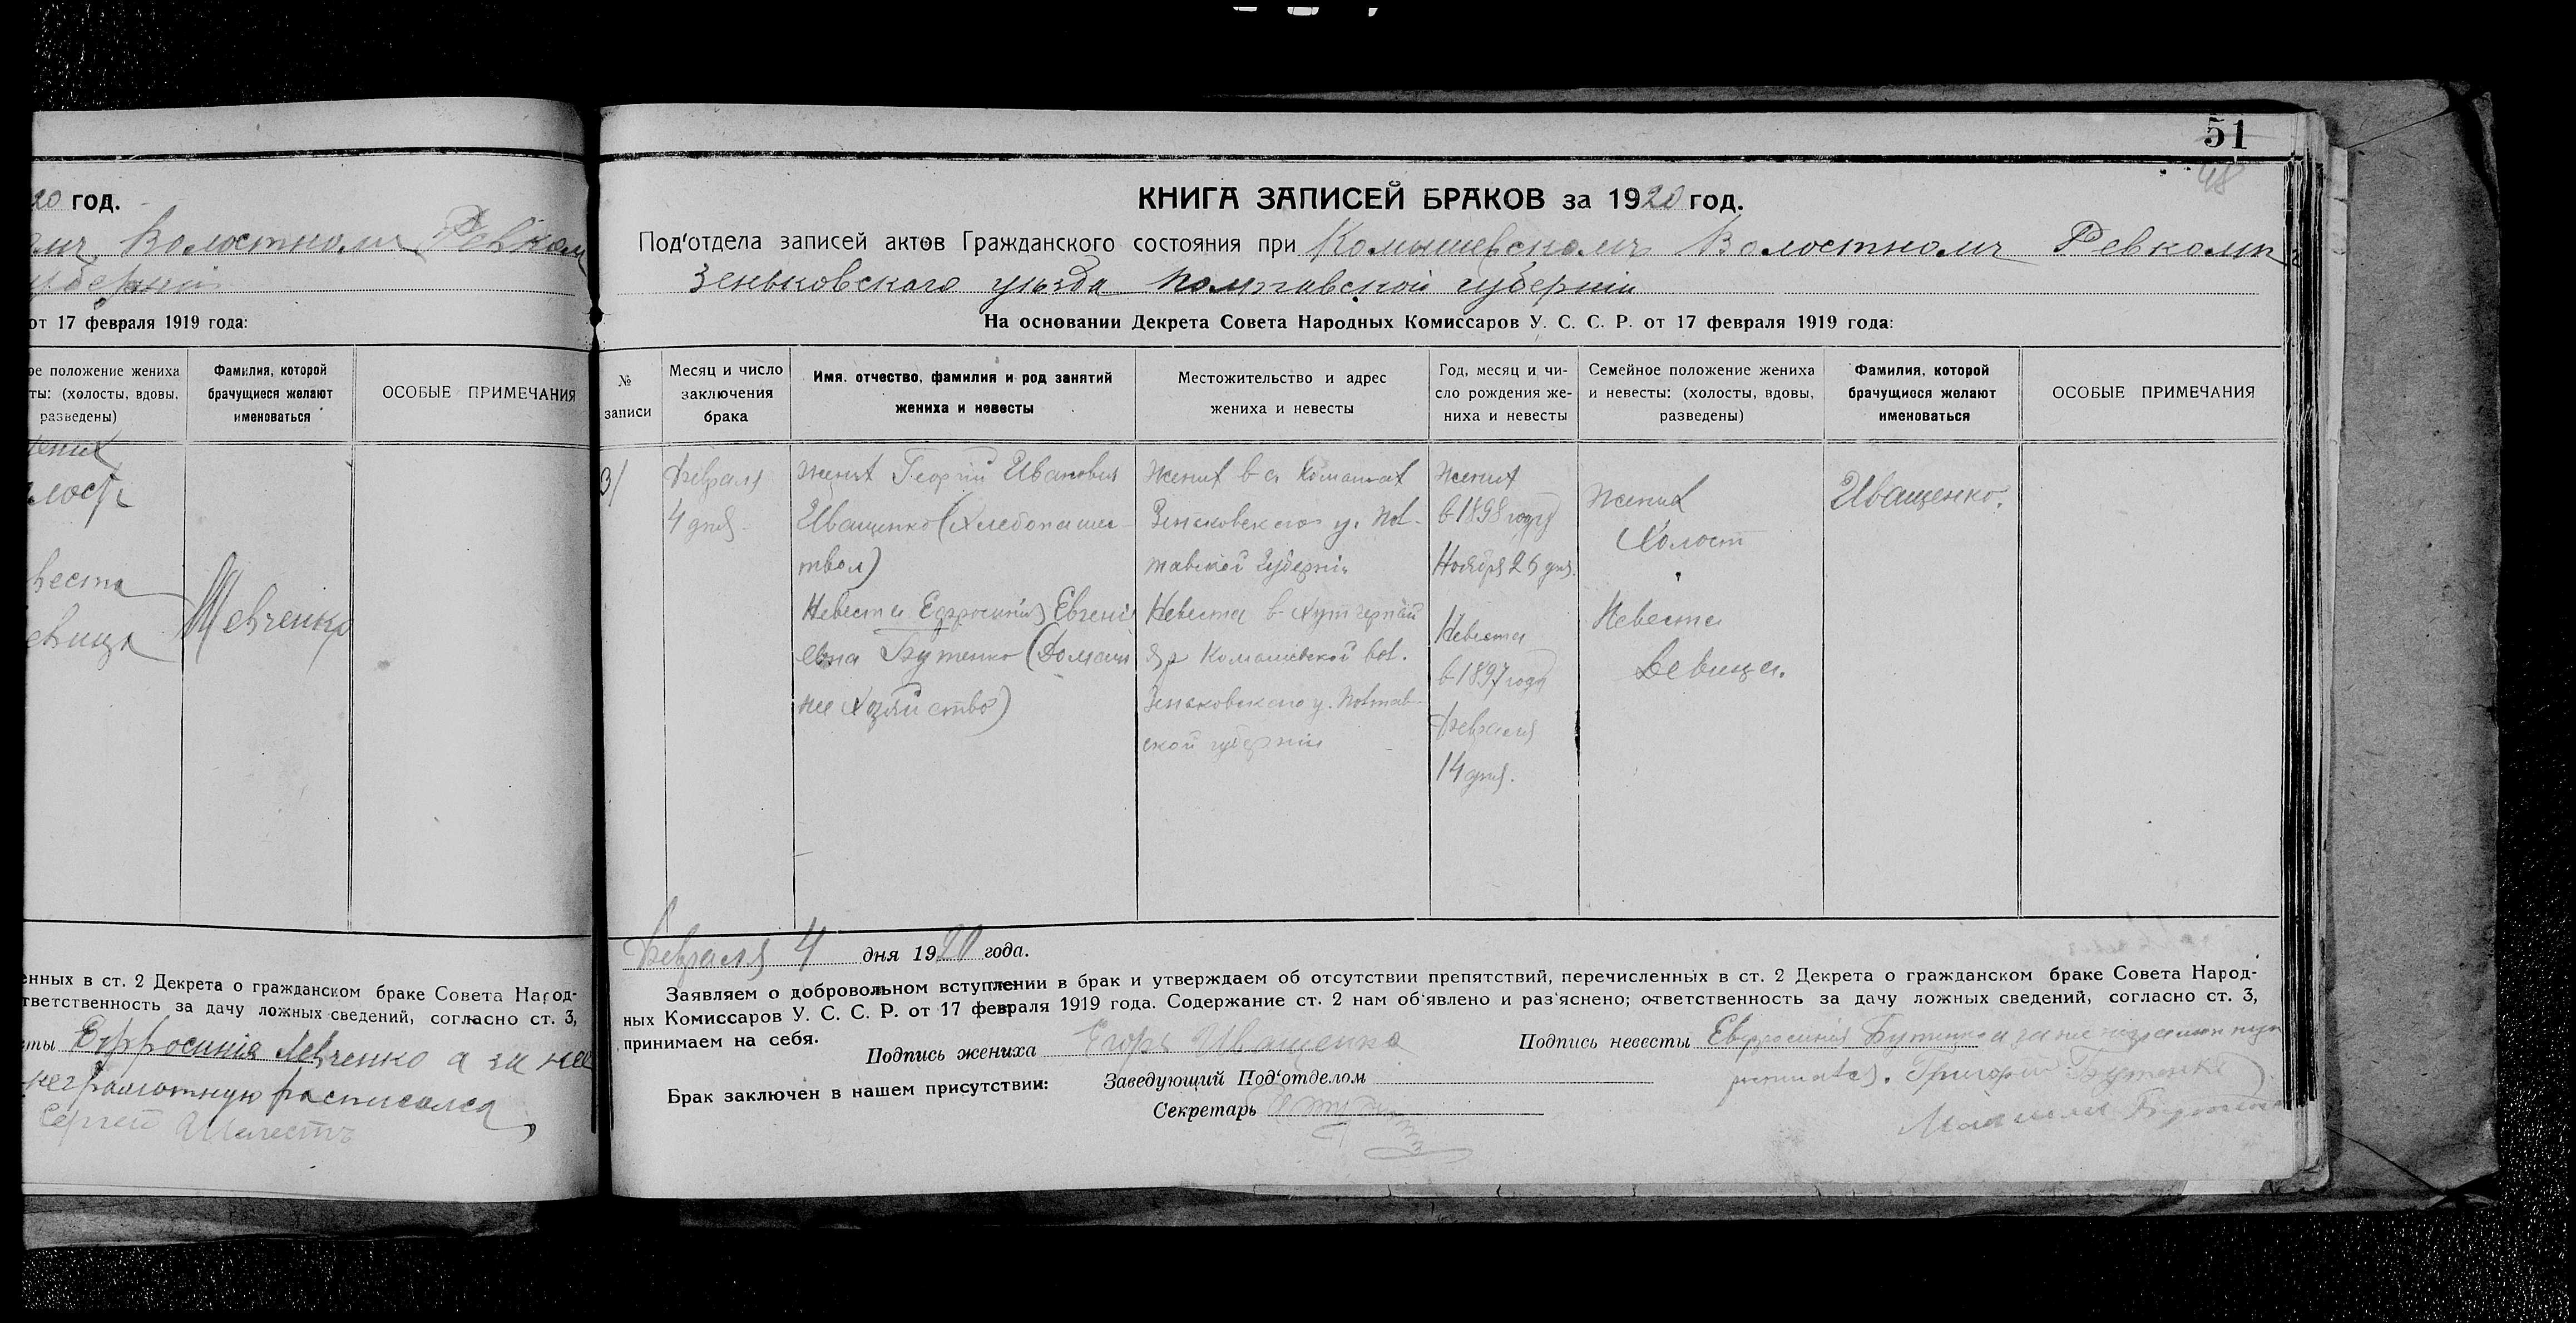 20 год.
Волостном Ревком
губерніи
от 17 февраля 1919 года:
ое положение жениха
ты: (холосты, вдовы,
разведены)
Фамилия, которой
брачущиеся желают
именоваться
ОСОБЫЕ ПРИМЕЧАНИЯ
веста
Шевченко
енных в ст. 2 Декрета о гражданском браке Совета Народ-
тветственность за дачу ложных сведений, согласно ст. 3,
ты Ефросинія Левченко а за нее
неграмотную росписался
Сергей Шелестъ
51
48
КНИГА ЗАПИСЕЙ БРАКОВ за 1920 год.
Под'отдела записей актов Гражданского состояния при Комышевскомъ Волостномъ Ревкомѣ
Зеньковского уѣзда Полтавской губерніи
На основании Декрета Совета Народных Комиссаров У. С. С. Р. от 17 февраля 1919 года:
№
записи
Месяц и число
заключения
брака
Имя, отчество, фамилия и род занятий
жениха и невесты
Местожительство и адрес
жениха и невесты
Год, месяц и чи-
сло рождения же-
ниха и невесты
Семейное положение жениха
и невесты: (холосты, вдовы,
разведены)
Фамилия, которой
брачущиеся желают
именоваться
ОСОБЫЕ ПРИМЕЧАНИЯ
31
Февраля
4 дня
Жених Георгій Иванович
Иващенко (хлебопаше-
твом)
Невеста Ефросинія Евгені
евна Бутенко (Домаш
нее хозяйство)
Жених в с.
Зеньковского у. Пол-
тавской губерніи
Невеста в хут.
Комышевской вол.
Зеньковского у. Полтав-
ской губерніи
Жених
в 1898 году
Ноября 26 дня.
Невеста
в 1897 году
Февраля
14 дня.
Жених
Холост
Невеста
Девица.
Иващенко.
Февраля 4 дня 1920 года.
Заявляем о добровольном вступлении в брак и утверждаем об отсутствии препятствий, перечисленных в ст. 2 Декрета о гражданском браке Совета Народ-
ных Комиссаров У. С. С. Р. от 17 февраля 1919 года. Содержание ст. 2 нам об'явлено и раз'яснено; ответственность за дачу ложных сведений, согласно ст. 3,
принимаем на себя.
Подпись жениха Егоръ Иващенко
Подпись невесты Евфросинія Бутенко а за не
Григорий Бутенко
Брак заключен в нашем присутствии:
Заведующий Под'отделом
Секретарь